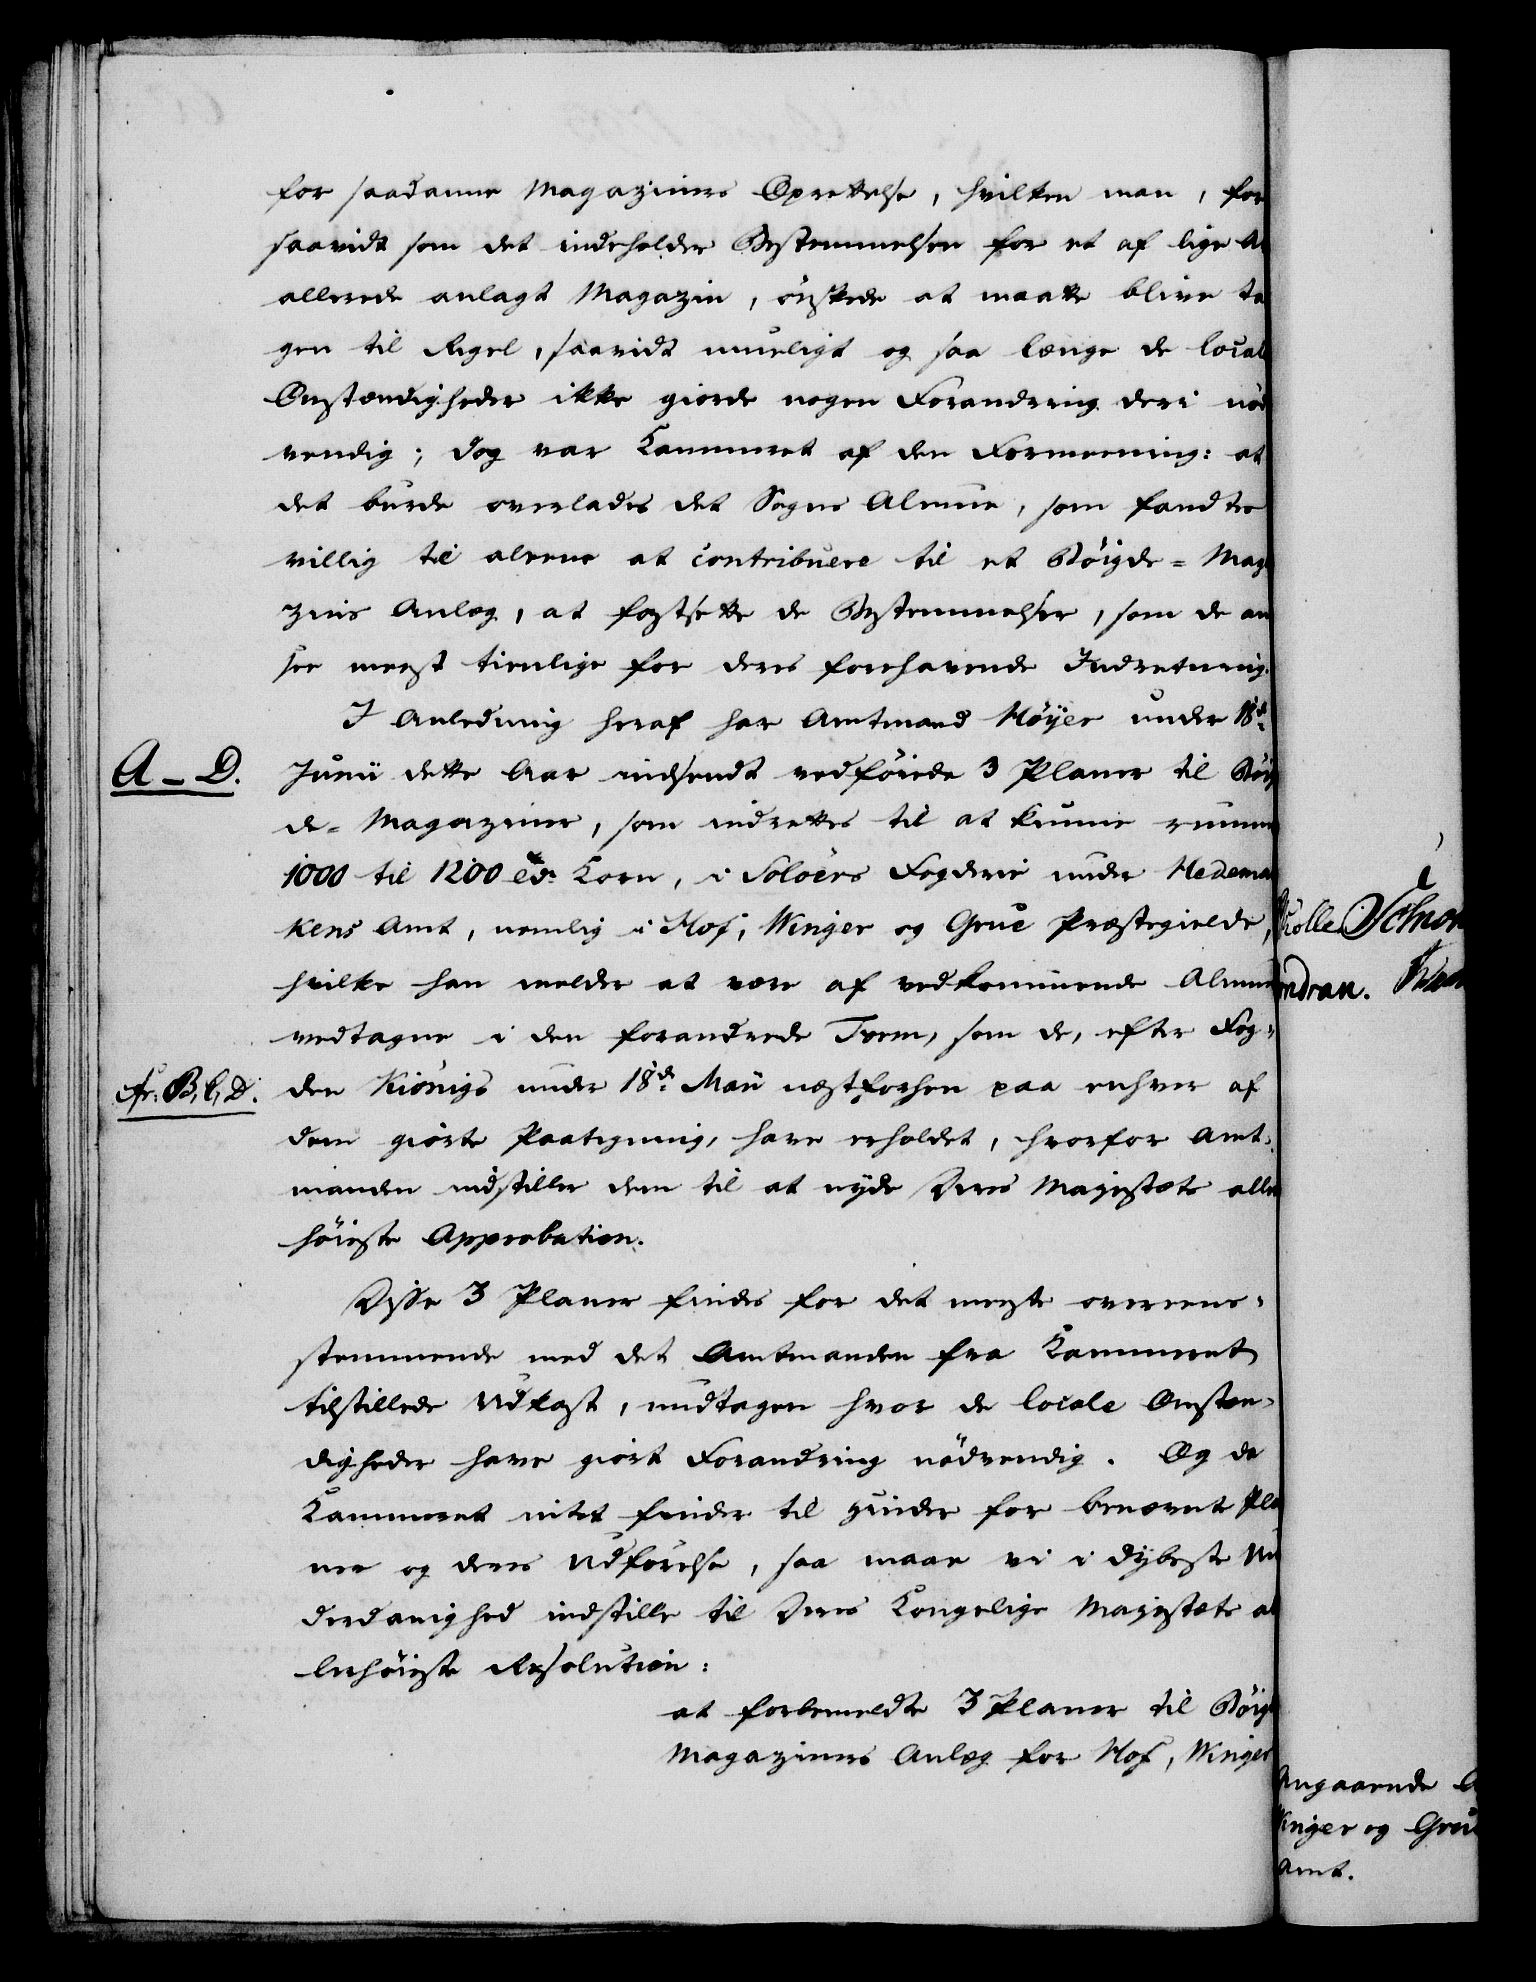 for saadanne Magaziners Oprettelse, hvilken man, for
saavidt som det indeholder Bestemmelsen for et af lige A
allerede anlagt Magazin, önskede at maatte blive ta
gen til Regel, saavidt mueligt og saa længe de local
Omstændigheder ikke giorde nogen Forandring deri nöd
vendig; dog var Kammeret af den Formeening: at
det burde overlades det Sogns Almue, som fandtes
villig til aleene at contribuere til et Böigde=Mag
zins Anlæg, at fastsætte de Bestemmelser, som de an
see meest tienlige for deres forehavende Indretning.
I Anledning heraf har Amtmand Höyer under 18de
A–D.
Junii dette Aar indsendt vedföiede 3 Planer til Böig
de=Magaziner, som indrettes til at kunne rumme
1000 til 1200 Tdr Korn, i Soloers Fogderie under Hedema
kens Amt, nemlig i Hof, Winger og Grue Præstegielde,
hvilke han melder at være af vedkommende Almue
vedtagne i den forandrede Form, som de, efter Fog-
fr. B, C, D.
den Kiönigs under 18de Maii næstforhen paa enhver af
dem giorte Paategning, have erholdet, hvorfor Amt-
manden indstiller dem til at nyde Deres Majestæts aller
höieste Approbation.
Disse 3 Planer findes for det meeste overeens-
stemmende med det Amtmanden fra Kammeret
tilstillede Udkast, undtagen hvor de locale Omstæn-
digheder have giort Forandring nödvendig. Og da
Kammeret intet finder til Hinder for benævnte Pla
ner og deres Udförelse, saa maae vi i dybeste Un
derdanighed indstille til Deres Kongelige Majestæts al
lerhöieste Resolution:
at forbemeldte 3 Planer til Böigd
Magaziners Anlæg for Hof, Winger
ndran.
Angaaende
Winger og Grue
Amt.